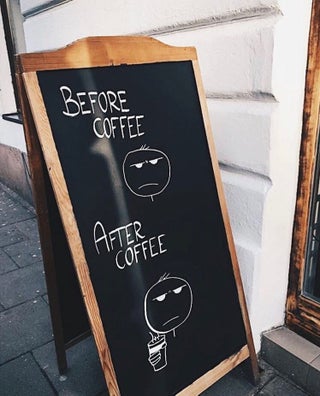 BEFORE
COFFEE
AFTER
COFFEE